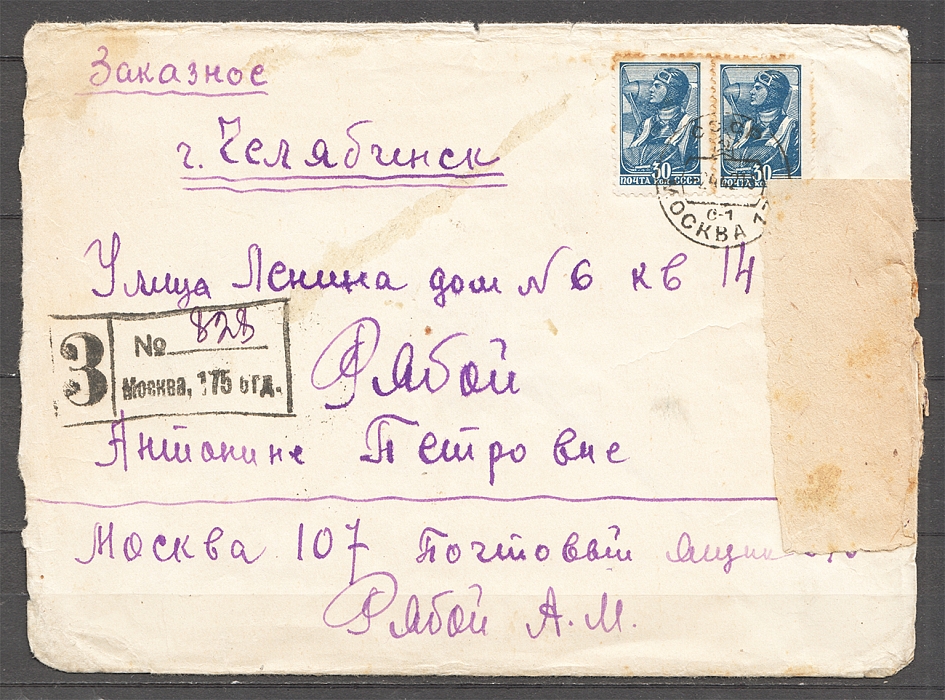 Заказное
г. Челябинск
30 30
ПОЧТА коп. СССР ПОЧТА
СССР
С-1
МОСКВА
Улица Ленина дом N 6 кв 14
З № 828
Москва, 175 отд.
Рябой
Антонине Петровне
Москва 107 Почтовый ящик
Рябой А.М.